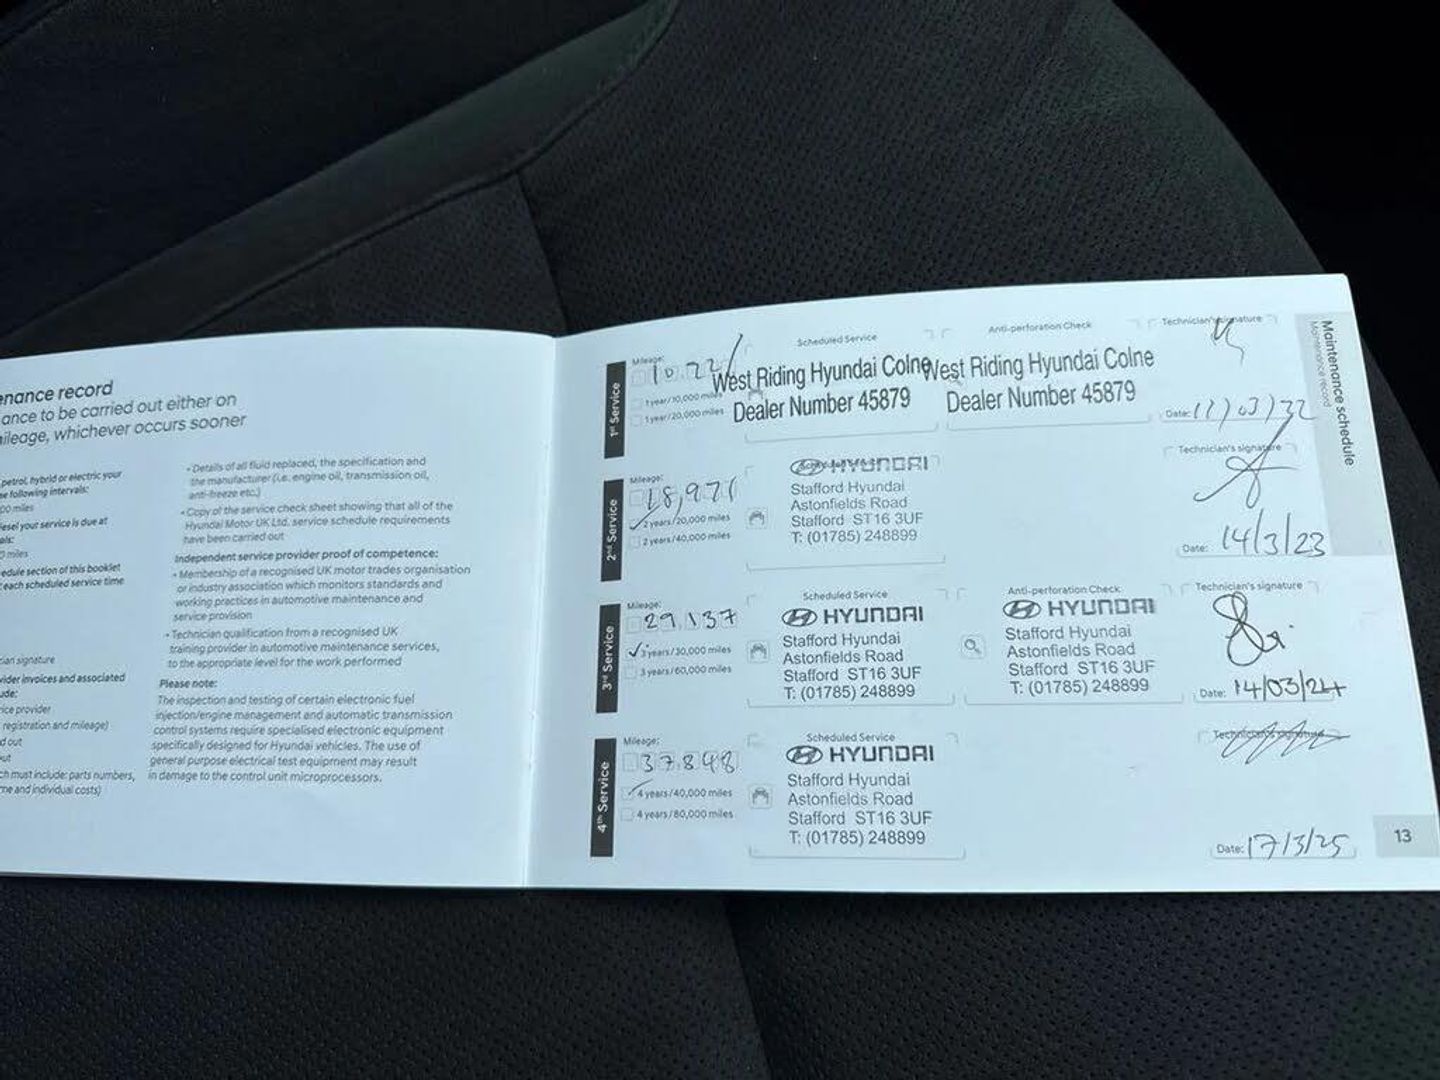 nance record
ance to be carried out either on
mileage, whichever occurs sooner
petrol, hybrid or electric your
e following intervals:
00 miles
diesel your service is due at
als:
0 miles
edule section of this booklet
each scheduled service time
ian signature
vider invoices and associated
ude:
ice provider
registration and mileage)
d out
out
ch must include: parts numbers,
me and individual costs)
• Details of all fluid replaced, the specification and
the manufacturer (i.e. engine oil, transmission oil,
anti-freeze etc.)
• Copy of the service check sheet showing that all of the
Hyundai Motor UK Ltd. service schedule requirements
have been carried out
Independent service provider proof of competence:
• Membership of a recognised UK motor trades organisation
or industry association which monitors standards and
working practices in automotive maintenance and
service provision
• Technician qualification from a recognised UK
training provider in automotive maintenance services,
to the appropriate level for the work performed
Please note:
The inspection and testing of certain electronic fuel
injection/engine management and automatic transmission
control systems require specialised electronic equipment
specifically designed for Hyundai vehicles. The use of
general purpose electrical test equipment may result
in damage to the control unit microprocessors.
1st Service
Mileage:
1 year/10,000 miles
1 year/20,000 miles
Scheduled Service
West Riding Hyundai Colne
Dealer Number 45879
Anti-perforation Check
West Riding Hyundai Colne
Dealer Number 45879
Technician's signature
Date:
2nd Service
Mileage:
18,971
2 years/20,000 miles
2 years/40,000 miles
HYUNDAI
Stafford Hyundai
Astonfields Road
Stafford ST16 3UF
T: (01785) 248899
Technician's signature
Date: 14/3/23
3rd Service
Mileage:
29,137
3 years/30,000 miles
3 years/60,000 miles
Scheduled Service
HYUNDAI
Stafford Hyundai
Astonfields Road
Stafford ST16 3UF
T: (01785) 248899
Anti-perforation Check
HYUNDAI
Stafford Hyundai
Astonfields Road
Stafford ST16 3UF
T: (01785) 248899
Technician's signature
Date: 14/03/24
4th Service
Mileage:
37,848
4 years/40,000 miles
4 years/80,000 miles
Scheduled Service
HYUNDAI
Stafford Hyundai
Astonfields Road
Stafford ST16 3UF
T: (01785) 248899
Technician's signature
Date: 17/3/25
Maintenance schedule
Maintenance record
13